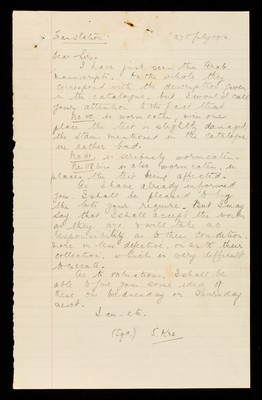 Translation:
Dear Sir,
I have just seen the Arab
manuscripts. On the whole they
correspond with the description given
in the catalogue, but I would call
your attention to the fact that
is worm eaten, in one
place the text is slightly damaged
the stains mentioned in the catalogue
are rather bad.
is seriously worm eaten.
is also worm eaten, in
places the text being affected.
As I have already informed
you I shall be pleased to buy
the lots you require. But I may
say that I shall accept the works
as they are & will take no
responsibility as to their condition,
more or less defective, or as to their
collection, which is very difficult
to execute.
As to valuations, I shall be
able to give you some idea of
these on Wednesday or Thursday
next.
I am, etc.
(Sgd.)